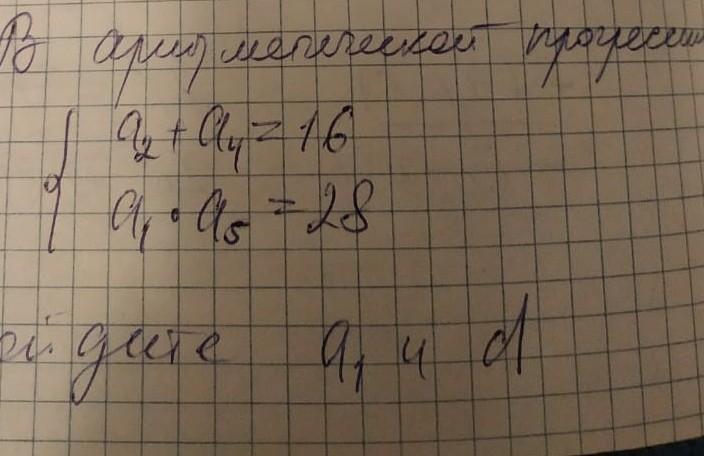 В арифметической прогрессии
a₂ + a₄ = 16
a₁ · a₅ = 28
айдите a₁ и d